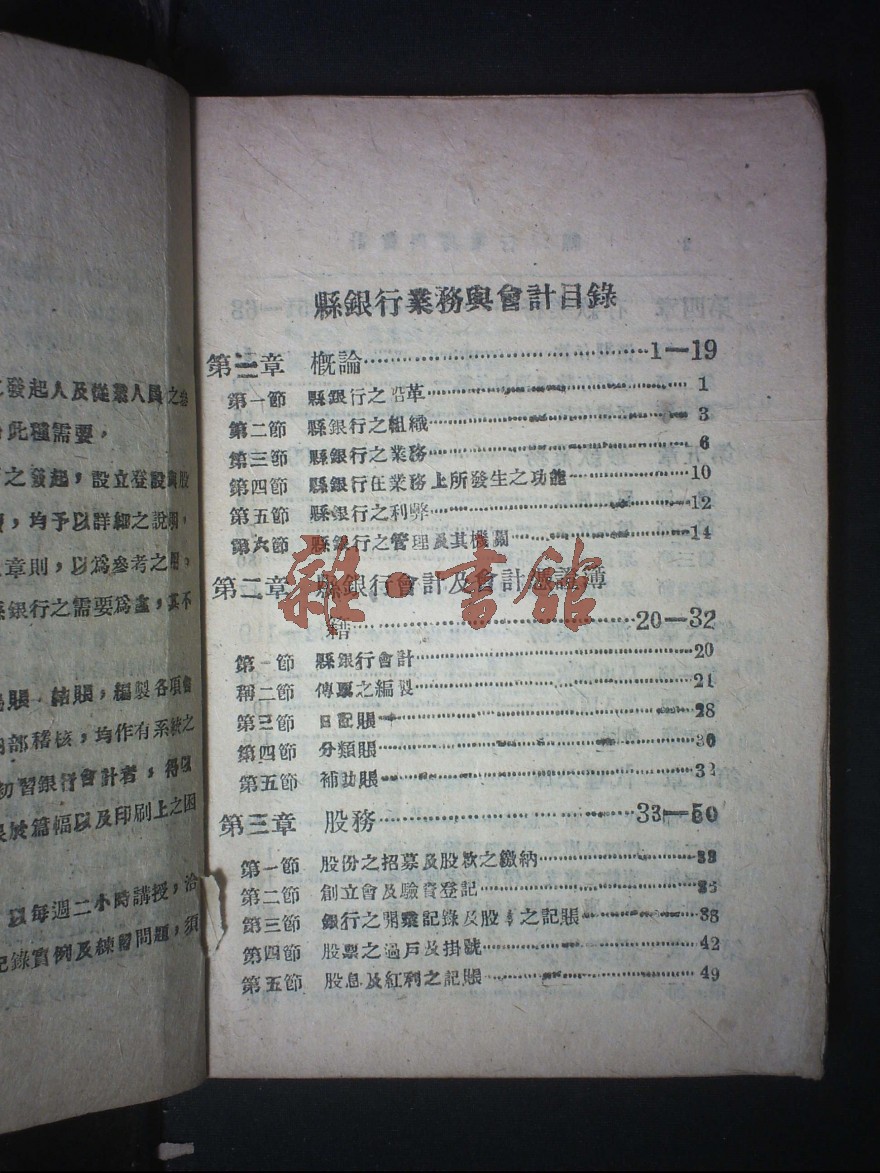 縣銀行業務與會計目錄
第一章 概論 1—19
第一節 縣銀行之沿革 1
第二節 縣銀行之組織 3
第三節 縣銀行之業務 6
第四節 縣銀行在業務上所發生之功能 10
第五節 縣銀行之利弊 12
第六節 縣銀行之管理及其機關 14
第二章 縣銀行會計及會計憑證簿
籍 20—32
第一節 縣銀行會計 20
稱二節 傳票之編製 21
第三節 日記賬 28
第四節 分類賬 30
第五節 補助賬 32
第三章 股務 33—50
第一節 股份之招募及股款之繳納 33
第二節 創立會及驗資登記 36
第三節 銀行之開業記錄及股 之記賬 38
第四節 股票之過戶及掛號 42
第五節 股息及紅利之記賬 49
發起人及從業人員之
此種需要，
之發起，設立登
，均予以詳細之說明，
章則，以爲參考之用，
銀行之需要爲 ，其不
賬 結賬，編製各項會
部稽核，均作有系統之
初習銀行會計者，得
於篇幅以及印刷上之困
以每週二小時講授，洽
錄實例及練習問題，須
雜·書館